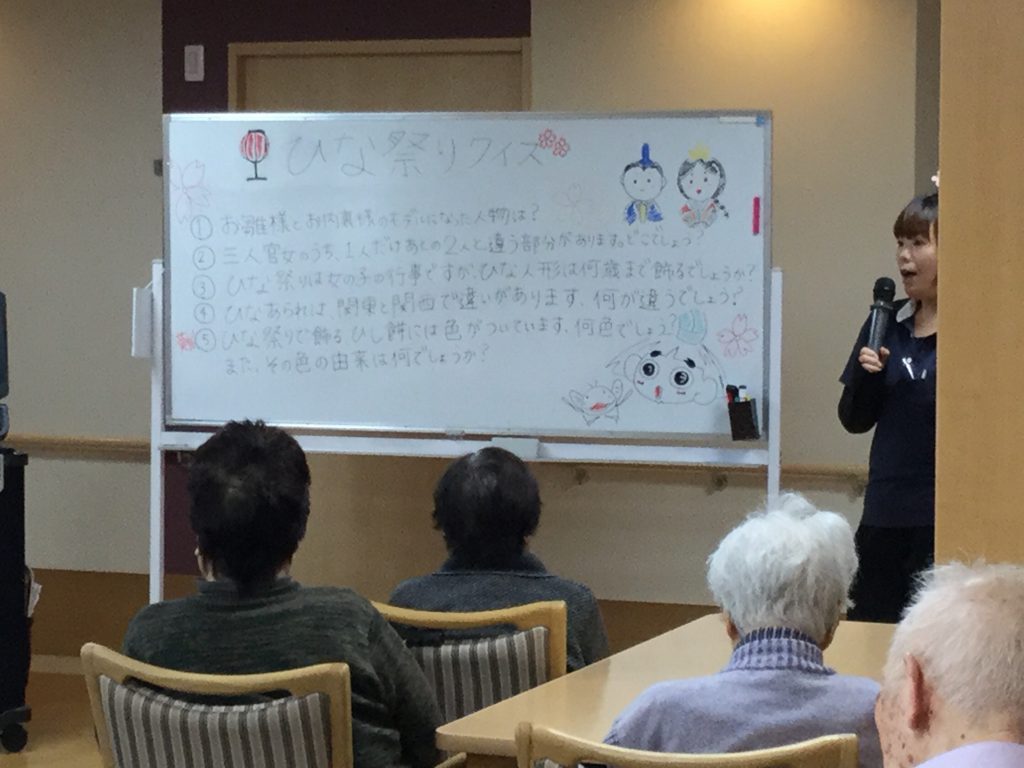 ひな祭りクイズ
① お雛様とお内裏様のモデルになった人物は?
② 三人官女のうち、1人だけあとの2人と違う部分があります。どこでしょう?
③ ひな祭りは女の子の行事ですが、ひな人形は何歳まで飾るでしょうか?
④ ひなあられは、関東と関西で違いがあります、何が違うでしょう?
⑤ ひな祭りで飾るひし餅には色がついています、何色でしょう?
また、その色の由来は何でしょうか?